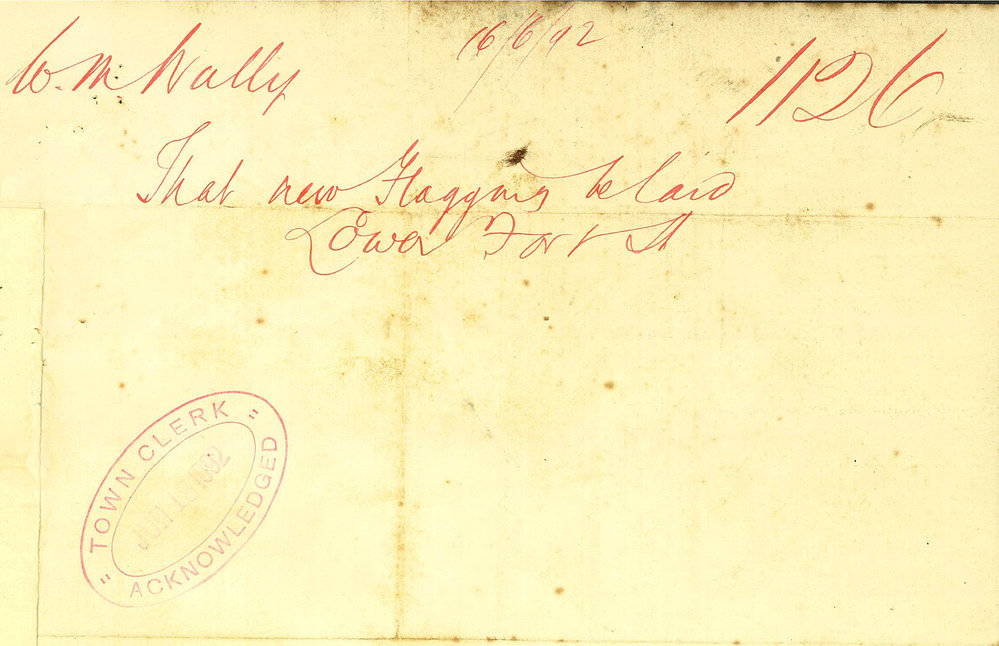 16/6/92
W. M. Wally 1126
That new Flagging be laid
Lower Fort St
"TOWN CLERK"
JUN 18 1892
ACKNOWLEDGED